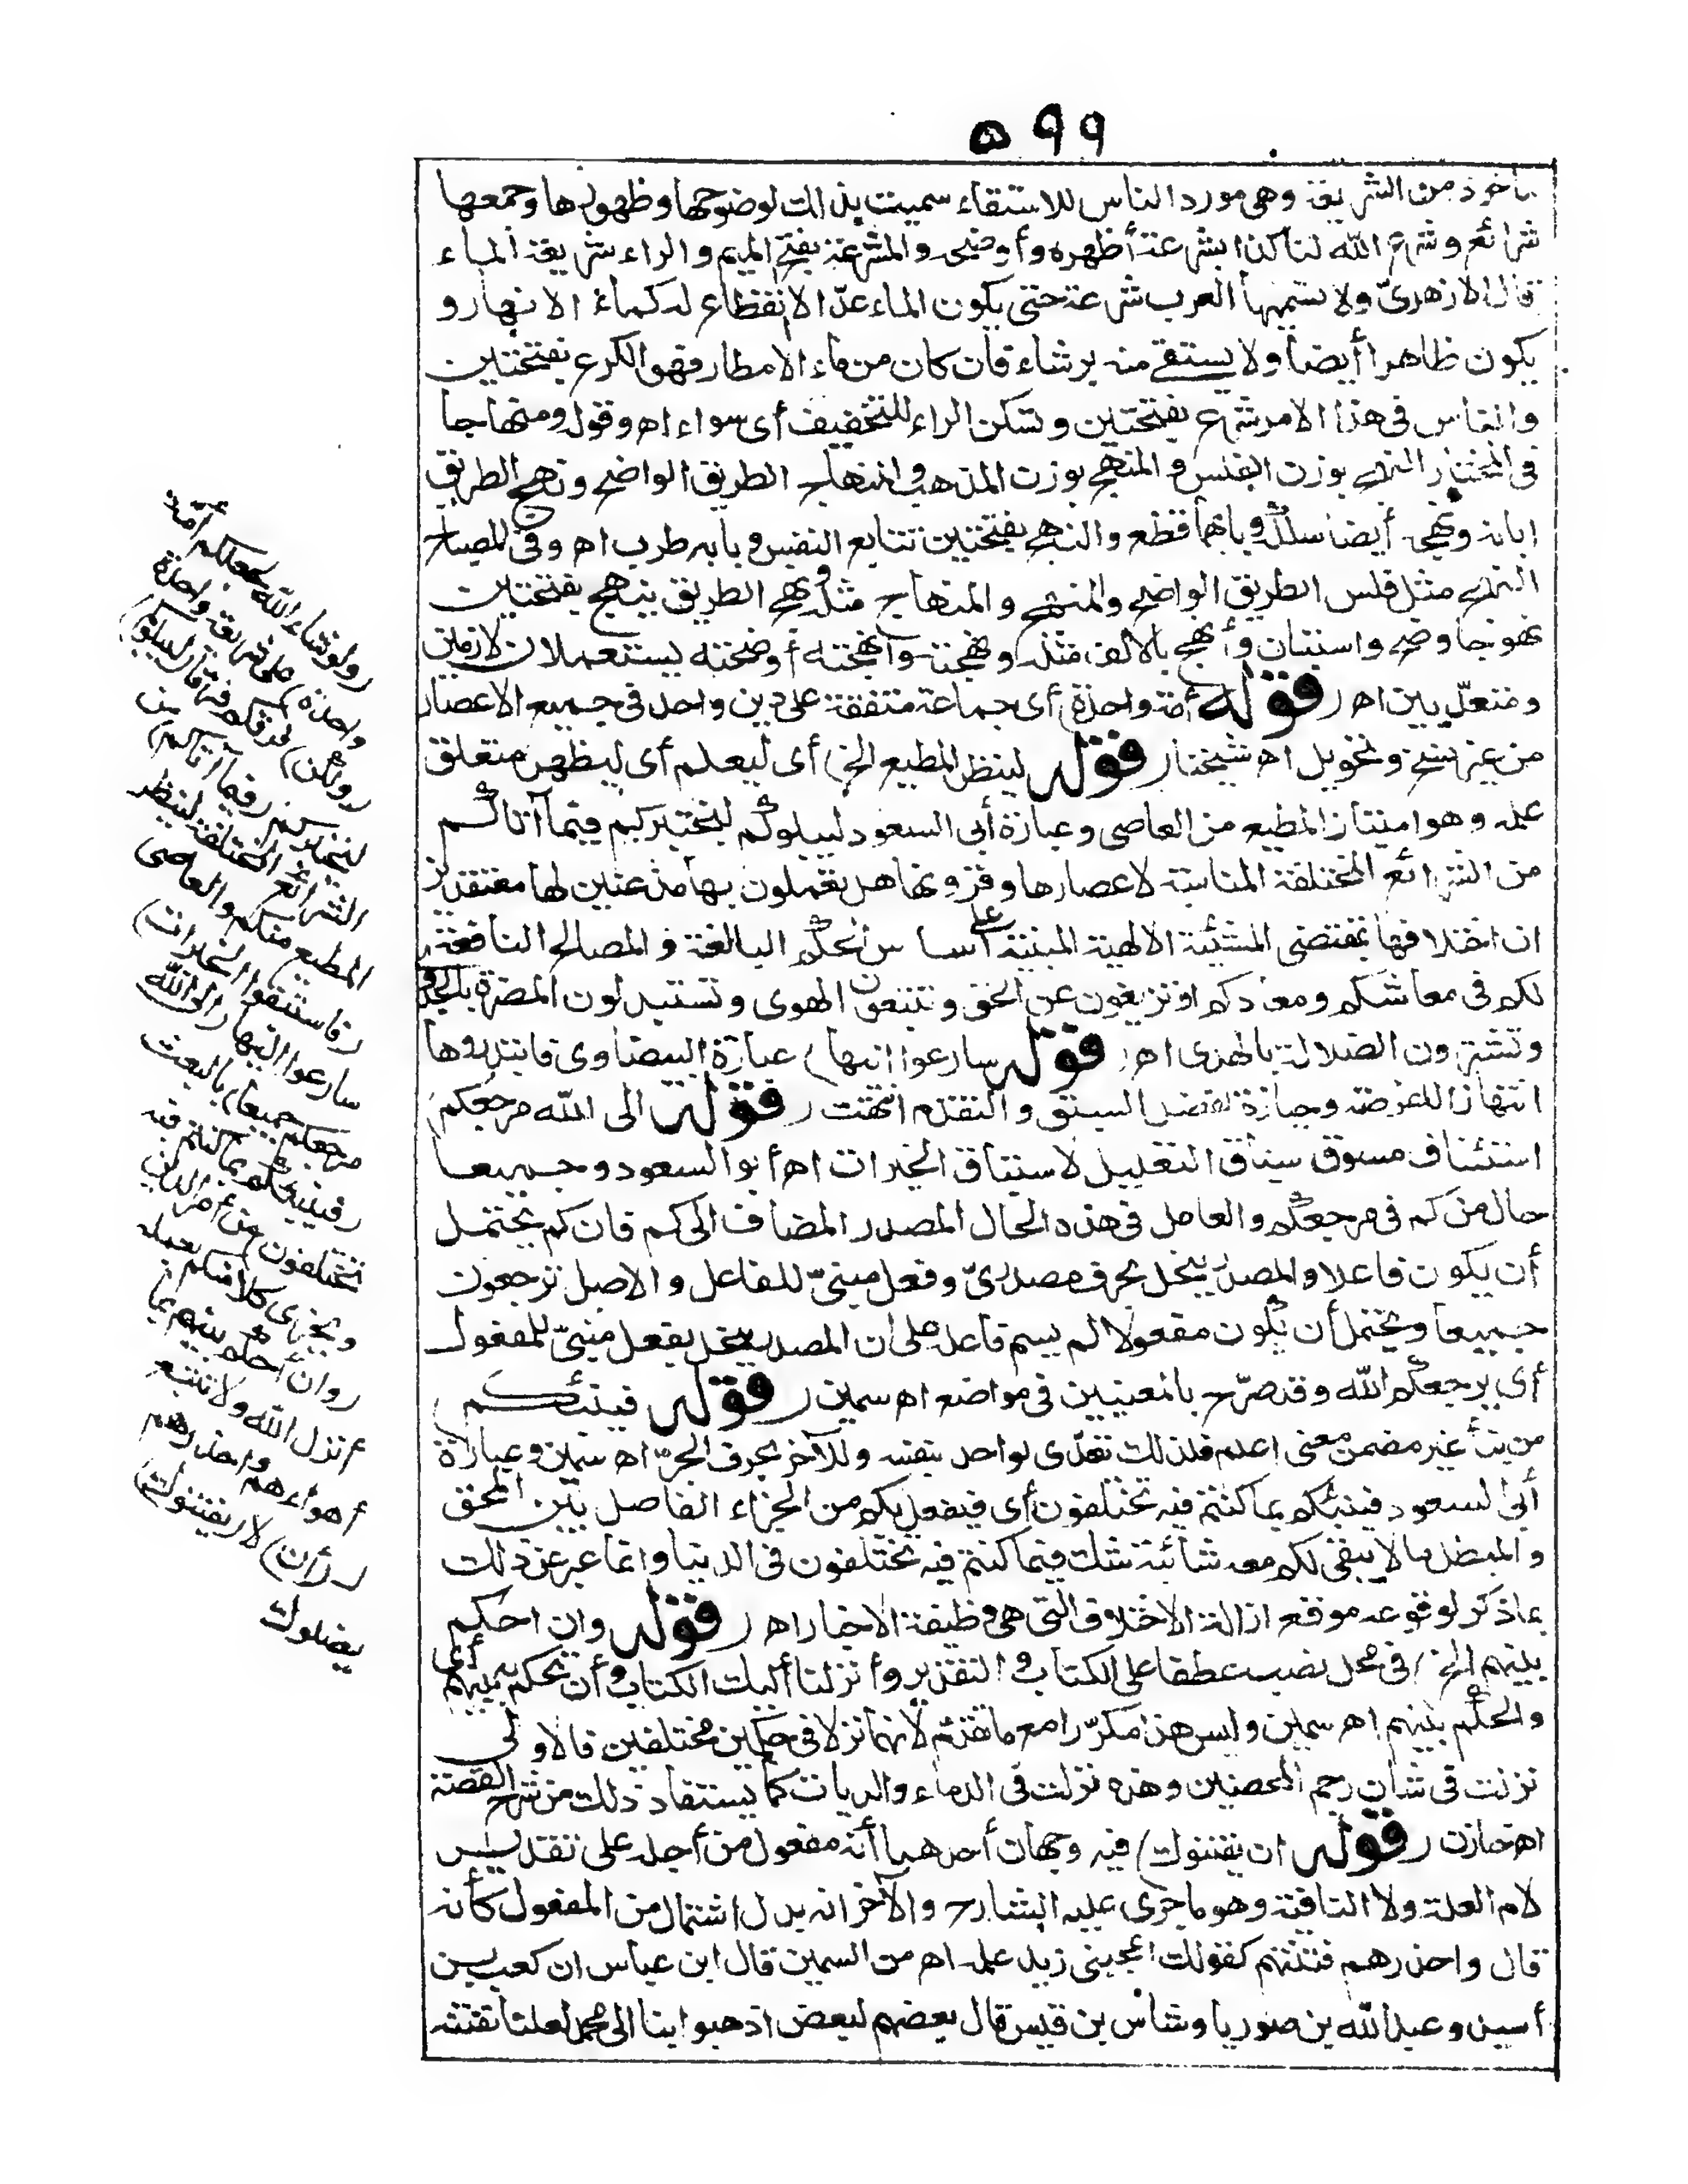 ٥٩٩
مأخوذ من الشريعة وهى مورد الناس للاستقاء سميت بذلك لوضوحها وظهورها وجمعها
شرائع وشرع الله لنا كذا يشرعه أظهره وأوضحه والمشرعة بفتح الميم والراء شريعة الماء
قال الازهرىّ ولا تسميها العرب شرعة حتى يكون الماء عدّا لا انقطاع له كماء الانهار و
يكون ظاهرا أيضا ولا يستقى منه برشاء فان كان من ماء الامطار فهو الكرع بفتحتين
والناس فى هذا الامر شرع بفتحتين وتسكن الراء للتخفيف أى سواء اه وقوله ومنهاجا
فى المختار النهج بوزن الفلس والمنهج بوزن المذهب والمنهاج الطريق الواضح ونهج الطريق
ابانه ونهجه أيضا سلكه وبابهما قطع والنهج بفتحتين تتابع النفس وبابه طرب اه وفى المصباح
النهج مثل فلس الطريق الواضح والمنهج والمنهاج مثله ونهج الطريق ينهج بفتحتين
نهوجا وضح واستبان وأنهج بالالف مثله ونهجته وأنهجته أوضحته يستعملان لازمين
ومتعدّيين اه (قوله أمة واحدة) أى جماعة متفقة على دين واحد فى جميع الاعصار
من غير نسخ وتحويل اه شيخنا (قوله لينظر المطيع الخ) أى ليعلم أى ليظهر متعلق
علمه وهو امتياز المطيع من العاصى وعبارة أبى السعود ليبلوكم ليختبركم فيما آتاكم
من الشرائع المختلفة المناسبة لاعصارها وقرونها هل تعملون بها مذعنين لها معتقدين
ان اختلافها بمقتضى المشيئة الالهية المبنية على أساس الحكم البالغة والمصالح النافعة
لكم فى معاشكم ومعادكم او تزيغون عن الحق وتتبعون الهوى وتستبدلون المضرة بالجدوى
وتشترون الضلالة بالهدى اه (قوله سارعوا اليها) عبارة البيضاوى فابتدروها
انتهازا للفرصة وحيازة لفضل السبق والتقدم انتهت (قوله الى الله مرجعكم)
استئناف مسوق سياق التعليل لاستباق الخيرات اه أبو السعود وجميعا
حال من كم فى مرجعكم والعامل فى هذه الحال المصدر المضاف الى كم فان كم يحتمل
أن يكون فاعلا والمصدر ينحل بحرف مصدرىّ وفعل مبنىّ للفاعل والاصل ترجعون
جميعا ويحتمل أن يكون مفعولا لم يسم فاعله على ان المصدر ينحل بفعل مبنىّ للمفعول
أى يرجعكم الله وقد صرّح بالمعنيين فى مواضع اه سمين (قوله فينبئكم)
من نبأ غير مضمن معنى اعلم فلذلك تعدّى لواحد بنفسه وللآخر بحرف الجرّ اه سمين وعبارة
أبى السعود فينبئكم بما كنتم فيه تختلفون أى فيفعل بكم من الجزاء الفاصل بين المحق
والمبطل ما لا يبقى لكم معه شائبة شك فيما كنتم فيه تختلفون فى الدنيا وانما عبر عن ذلك
بما ذكر لوقوعه موقع ازالة الاختلاف التى هى وظيفة الاخبار اه (قوله وان احكم
بينهم الخ) فى محل نصب عطفا على الكتاب والتقدير وأنزلنا اليك الكتاب وأن تحكم بينهم أى
والحكم بينهم اه سمين وليس هذا مكرّرا مع ما تقدّم لأنهما نزلا فى حكمين مختلفين فالاولى
نزلت فى شان رجم المحصنين وهذه نزلت فى الدماء والديات كما يستفاد ذلك من شرح القصة
اه خازن (قوله ان يفتنوك) فيه وجهان أحدهما أنه مفعول من أجله على تقدير
لام العلة ولا النافية وهو ما جرى عليه الشارح والآخر انه بدل اشتمال من المفعول كأنه
قال واحذرهم فتنتهم كقولك اعجبنى زيد علمه اه من السمين قال ابن عباس ان كعب بن
أسيد وعبد الله بن صوريا وشاس بن قيس قال بعضهم لبعض اذهبوا بنا الى محمد لعلنا نفتنه
(ولو شاء الله لجعلكم أمة
واحدة) على شريعة واحدة
(ولكن) فرقكم فرقا (ليبلوكم)
ليختبركم (فيما آتاكم) من
الشرائع المختلفة لينظر
المطيع منكم والعاصى
(فاستبقوا الخيرات)
سارعوا اليها (الى الله
مرجعكم جميعا) بالبعث
(فينبئكم بما كنتم فيه
تختلفون) من أمر الدين
ويجزى كلا منكم بعمله
(وان احكم بينهم بما
أنزل الله ولا تتبع
أهواءهم واحذرهم
لـ(أن) لا (يفتنوك)
يضلوك